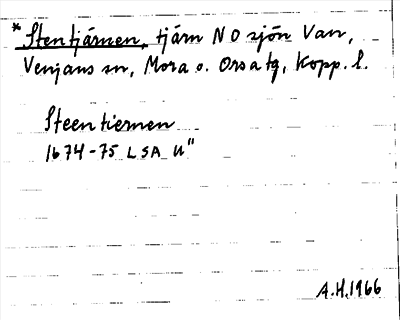 * Stentjärnen, tjärn N O sjön Van,
Venjans sn, Mora o. Orsa tg, Kopp. l.
Steentiernen
1674-75 LSA U"
A.H. 1966